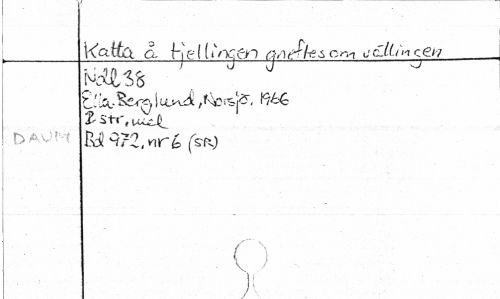 Katta å tjellingen gneftes om vällingen
Ndl 38
Ella Berglund, Norsjö, 1966
2 str, mel
DAUM
Bd 972, nr 6 (SR)